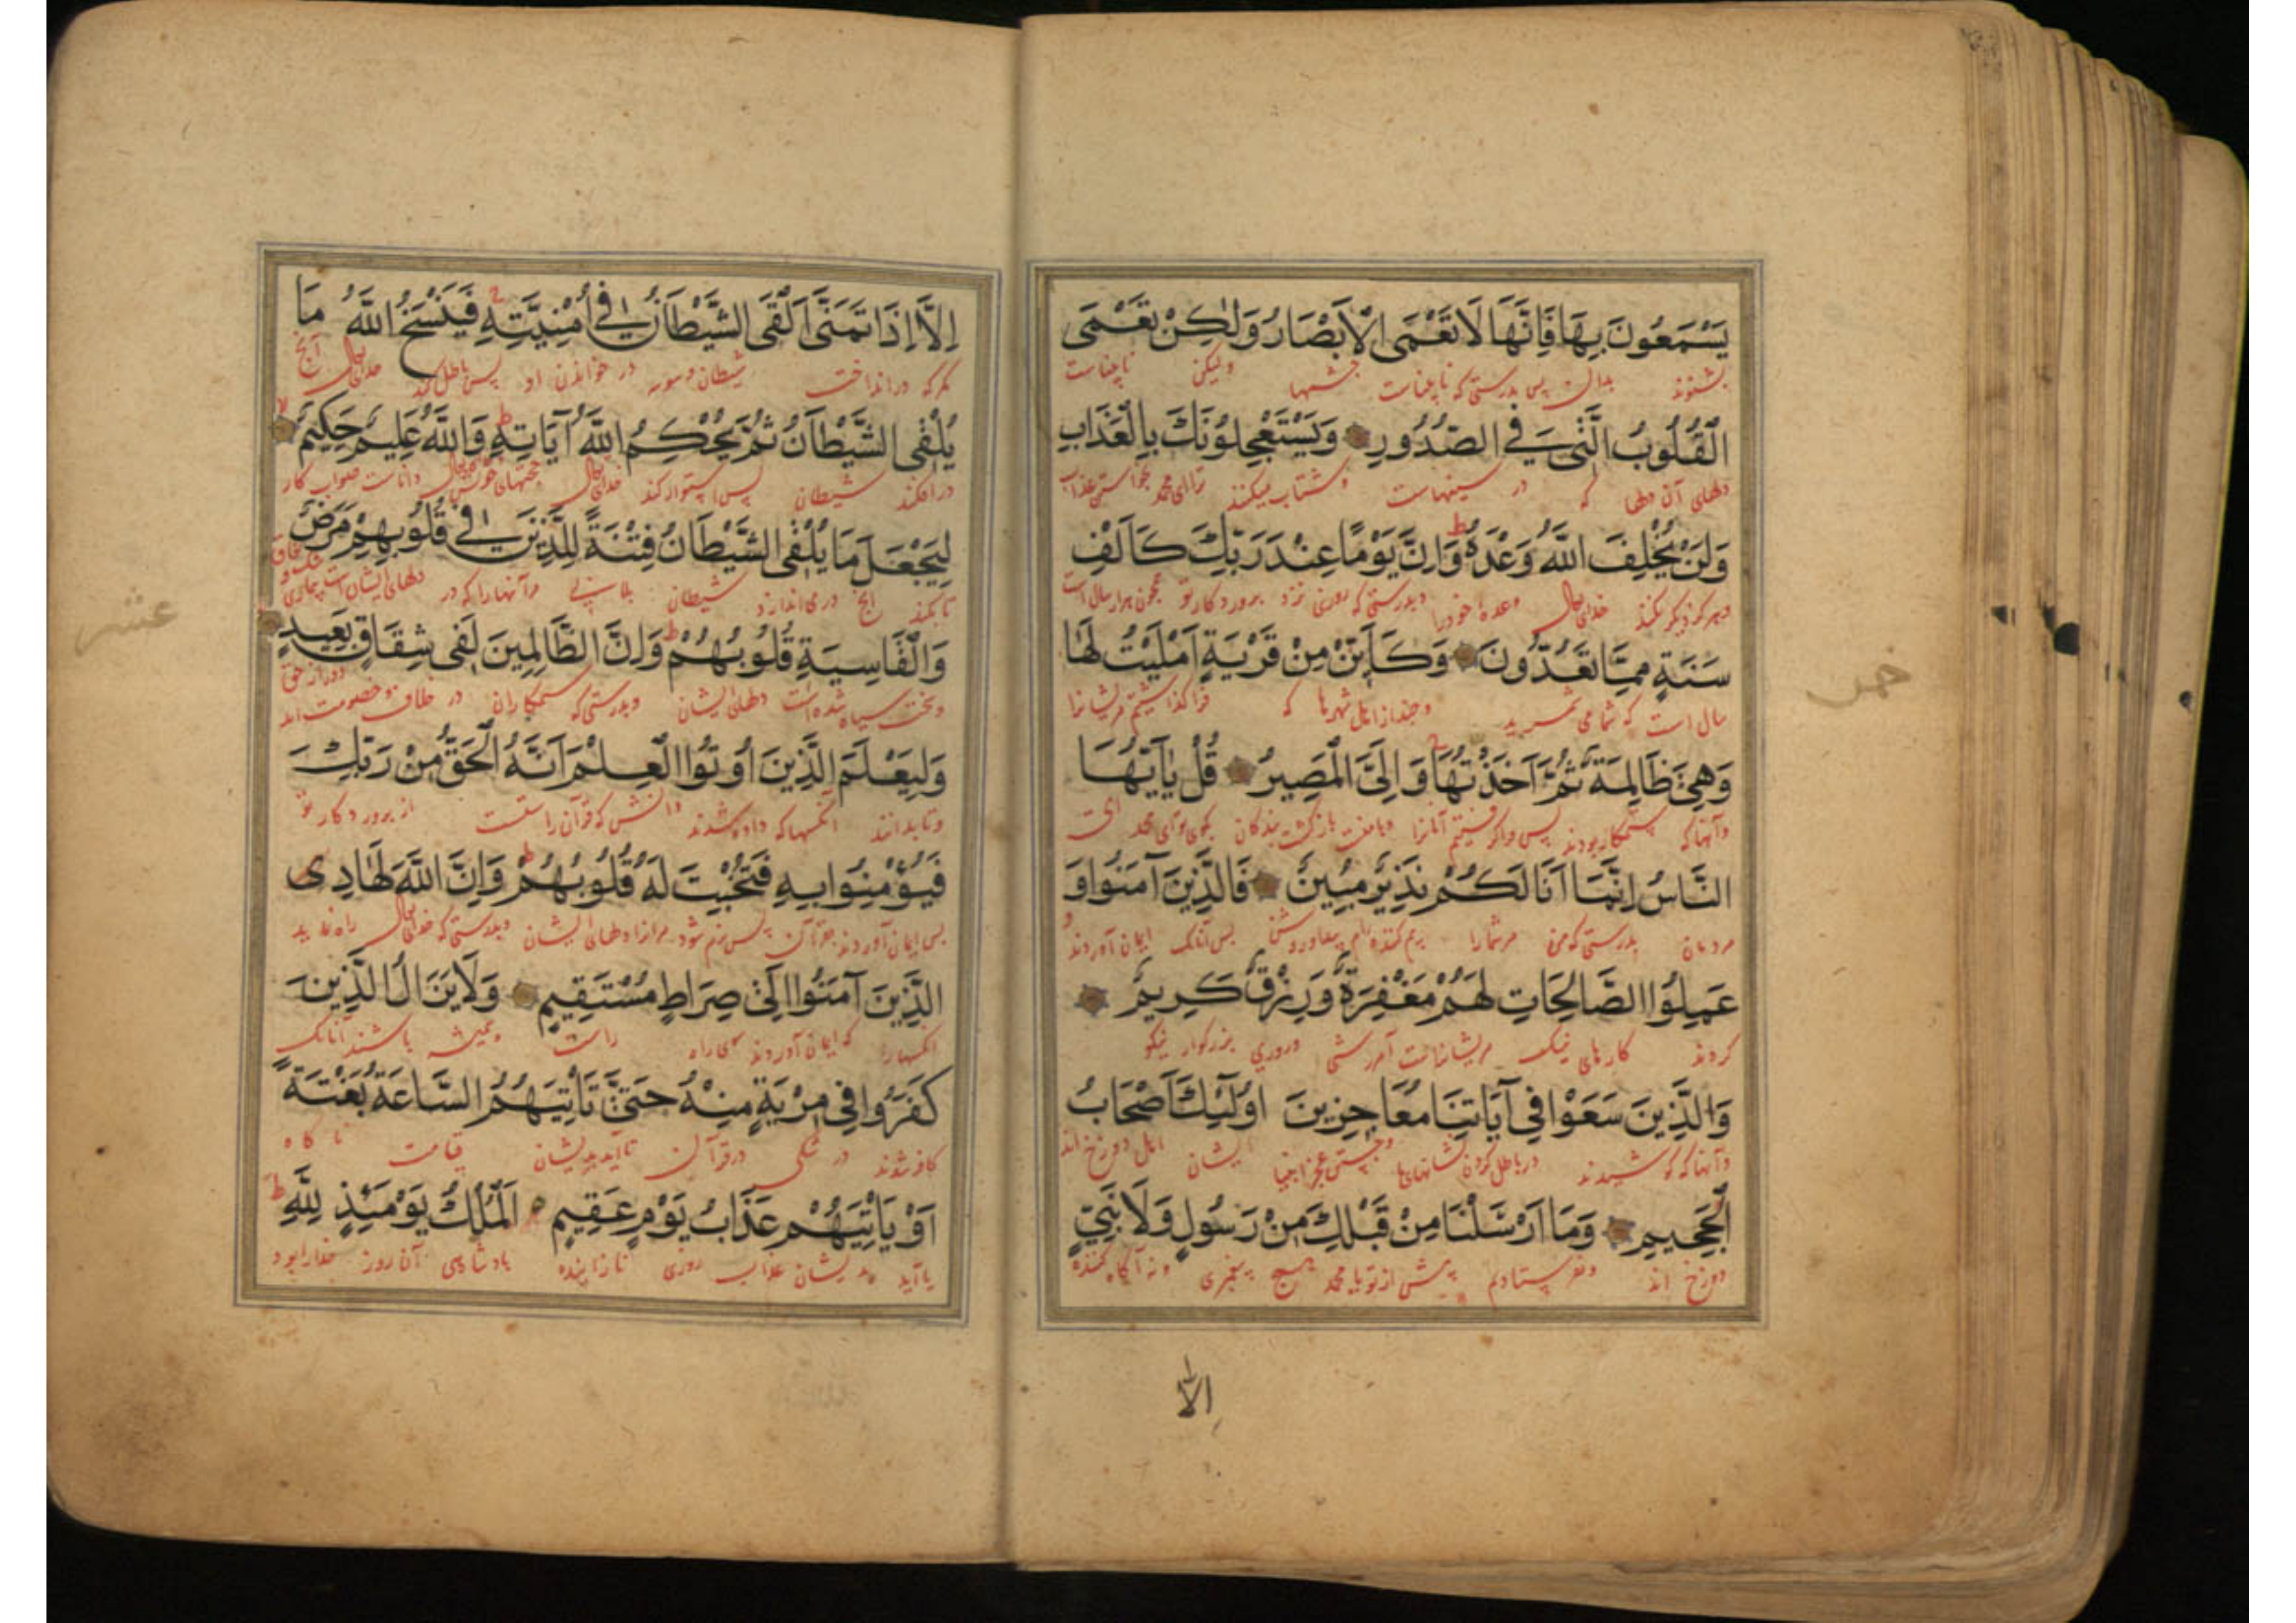 يَسْمَعُونَ بِهَا فَاِنَّهَا لَا تَعْمَى الْاَبْصَارُ وَلٰكِنْ تَعْمَى
بشنوند بدان پس بدرستی که نابیناست چشمها ولیکن نابیناست
الْقُلُوبُ الَّتِى فِى الصُّدُورِ وَيَسْتَعْجِلُونَكَ بِالْعَذَابِ
دلهای آن دلها که در سینهاست و شتاب میکنند ترا ای محمد بخواستن عذاب
وَلَنْ يُخْلِفَ اللّٰهُ وَعْدَهُ ط وَاِنَّ يَوْمًا عِنْدَ رَبِّكَ كَاَلْفِ
خدای وعده خودرا وبدرستی که روزی نزد پروردکار تو همچون هزار سال است
سَنَةٍ مِمَّا تَعُدُّونَ وَكَاَيِّنْ مِنْ قَرْيَةٍ اَمْلَيْتُ لَهَا
سال است که شما می شمرید وچند از اهل شهرها که
وَهِىَ ظَالِمَةٌ ثُمَّ اَخَذْتُهَا وَاِلَىَّ الْمَصِيرُ قُلْ يَا اَيُّهَا
وآنها که ستمکار بودند پس بازکشت بندکان بکوی ای محمد ای
النَّاسُ اِنَّمَا اَنَا لَكُمْ نَذِيرٌ مُبِينٌ فَالَّذِينَ آمَنُوا وَ
مردمان بدرستی که من مرشمارا بیم کننده ام پس آنانک ایمان آوردند و
عَمِلُوا الصَّالِحَاتِ لَهُمْ مَغْفِرَةٌ وَرِزْقٌ كَرِيمٌ
کردند کارهای نیک مریشانراست آمرزشی وروزی بزرکوار نیکو
وَالَّذِينَ سَعَوْا فِى آيَاتِنَا مُعَاجِزِينَ اُولٰٓئِكَ اَصْحَابُ
وآنها که کوشیدند در باطل کردن نشانهای ما ایشان اهل دوزخ اند
الْجَحِيمِ وَمَا اَرْسَلْنَا مِنْ قَبْلِكَ مِنْ رَسُولٍ وَلَا نَبِىٍّ
دوزخ اند ونفرستادیم پیش از تو یا محمد هیچ پیغمبری ونه آکاه کننده
اِلَّا
خمس
اِلَّا اِذَا تَمَنَّى اَلْقَى الشَّيْطَانُ فِى اُمْنِيَّتِهِ فَيَنْسَخُ اللّٰهُ مَا
مکر که در انداخت شیطان وسوسه در خواندن او پس باطل کند خدای آنچ
يُلْقِى الشَّيْطَانُ ثُمَّ يُحْكِمُ اللّٰهُ آيَاتِهِ ط وَاللّٰهُ عَلِيمٌ حَكِيمٌ لا
در افکند شیطان پس استوار کند خدای حجتهای خویش داناست صواب کار
لِيَجْعَلَ مَا يُلْقِى الشَّيْطَانُ فِتْنَةً لِلَّذِينَ فِى قُلُوبِهِمْ مَرَضٌ
تا کند آنچ در می اندازد شیطان بلا مر آنهارا که در دلهای ایشان است بیماری
وَالْقَاسِيَةِ قُلُوبُهُمْ ط وَاِنَّ الظَّالِمِينَ لَفِى شِقَاقٍ بَعِيدٍ
وسخت سیاه شده است دلهای ایشان وبدرستی که ستمکاران در خلاف وخصومت اند دور از حق
وَلِيَعْلَمَ الَّذِينَ اُوتُوا الْعِلْمَ اَنَّهُ الْحَقُّ مِنْ رَبِّكَ
وتا بدانند آنکسها که داده شدند دانش که قرآن راستست از پروردکار تو
فَيُؤْمِنُوا بِهِ فَتُخْبِتَ لَهُ قُلُوبُهُمْ ط وَاِنَّ اللّٰهَ لَهَادِى
پس ایمان آوردند بقرآن پس نرم شود مرانرا دلهای ایشان وبدرستی که خدای راه نماید
الَّذِينَ آمَنُوا اِلٰى صِرَاطٍ مُسْتَقِيمٍ وَلَا يَزَالُ الَّذِينَ
آنکسهارا که ایمان آوردند سوی راه راست وهمیشه باشند آنانک
كَفَرُوا فِى مِرْيَةٍ مِنْهُ حَتَّى تَاْتِيَهُمُ السَّاعَةُ بَغْتَةً
کافر شدند در شکی در قرآن تا آید بدیشان قیامت ناکاه
اَوْ يَاْتِيَهُمْ عَذَابُ يَوْمٍ عَقِيمٍ اَلْمُلْكُ يَوْمَئِذٍ لِلّٰهِ ط
یا آید بدیشان عذاب روزی نازاینده پادشاهی آن روز خدارا بود
عشر